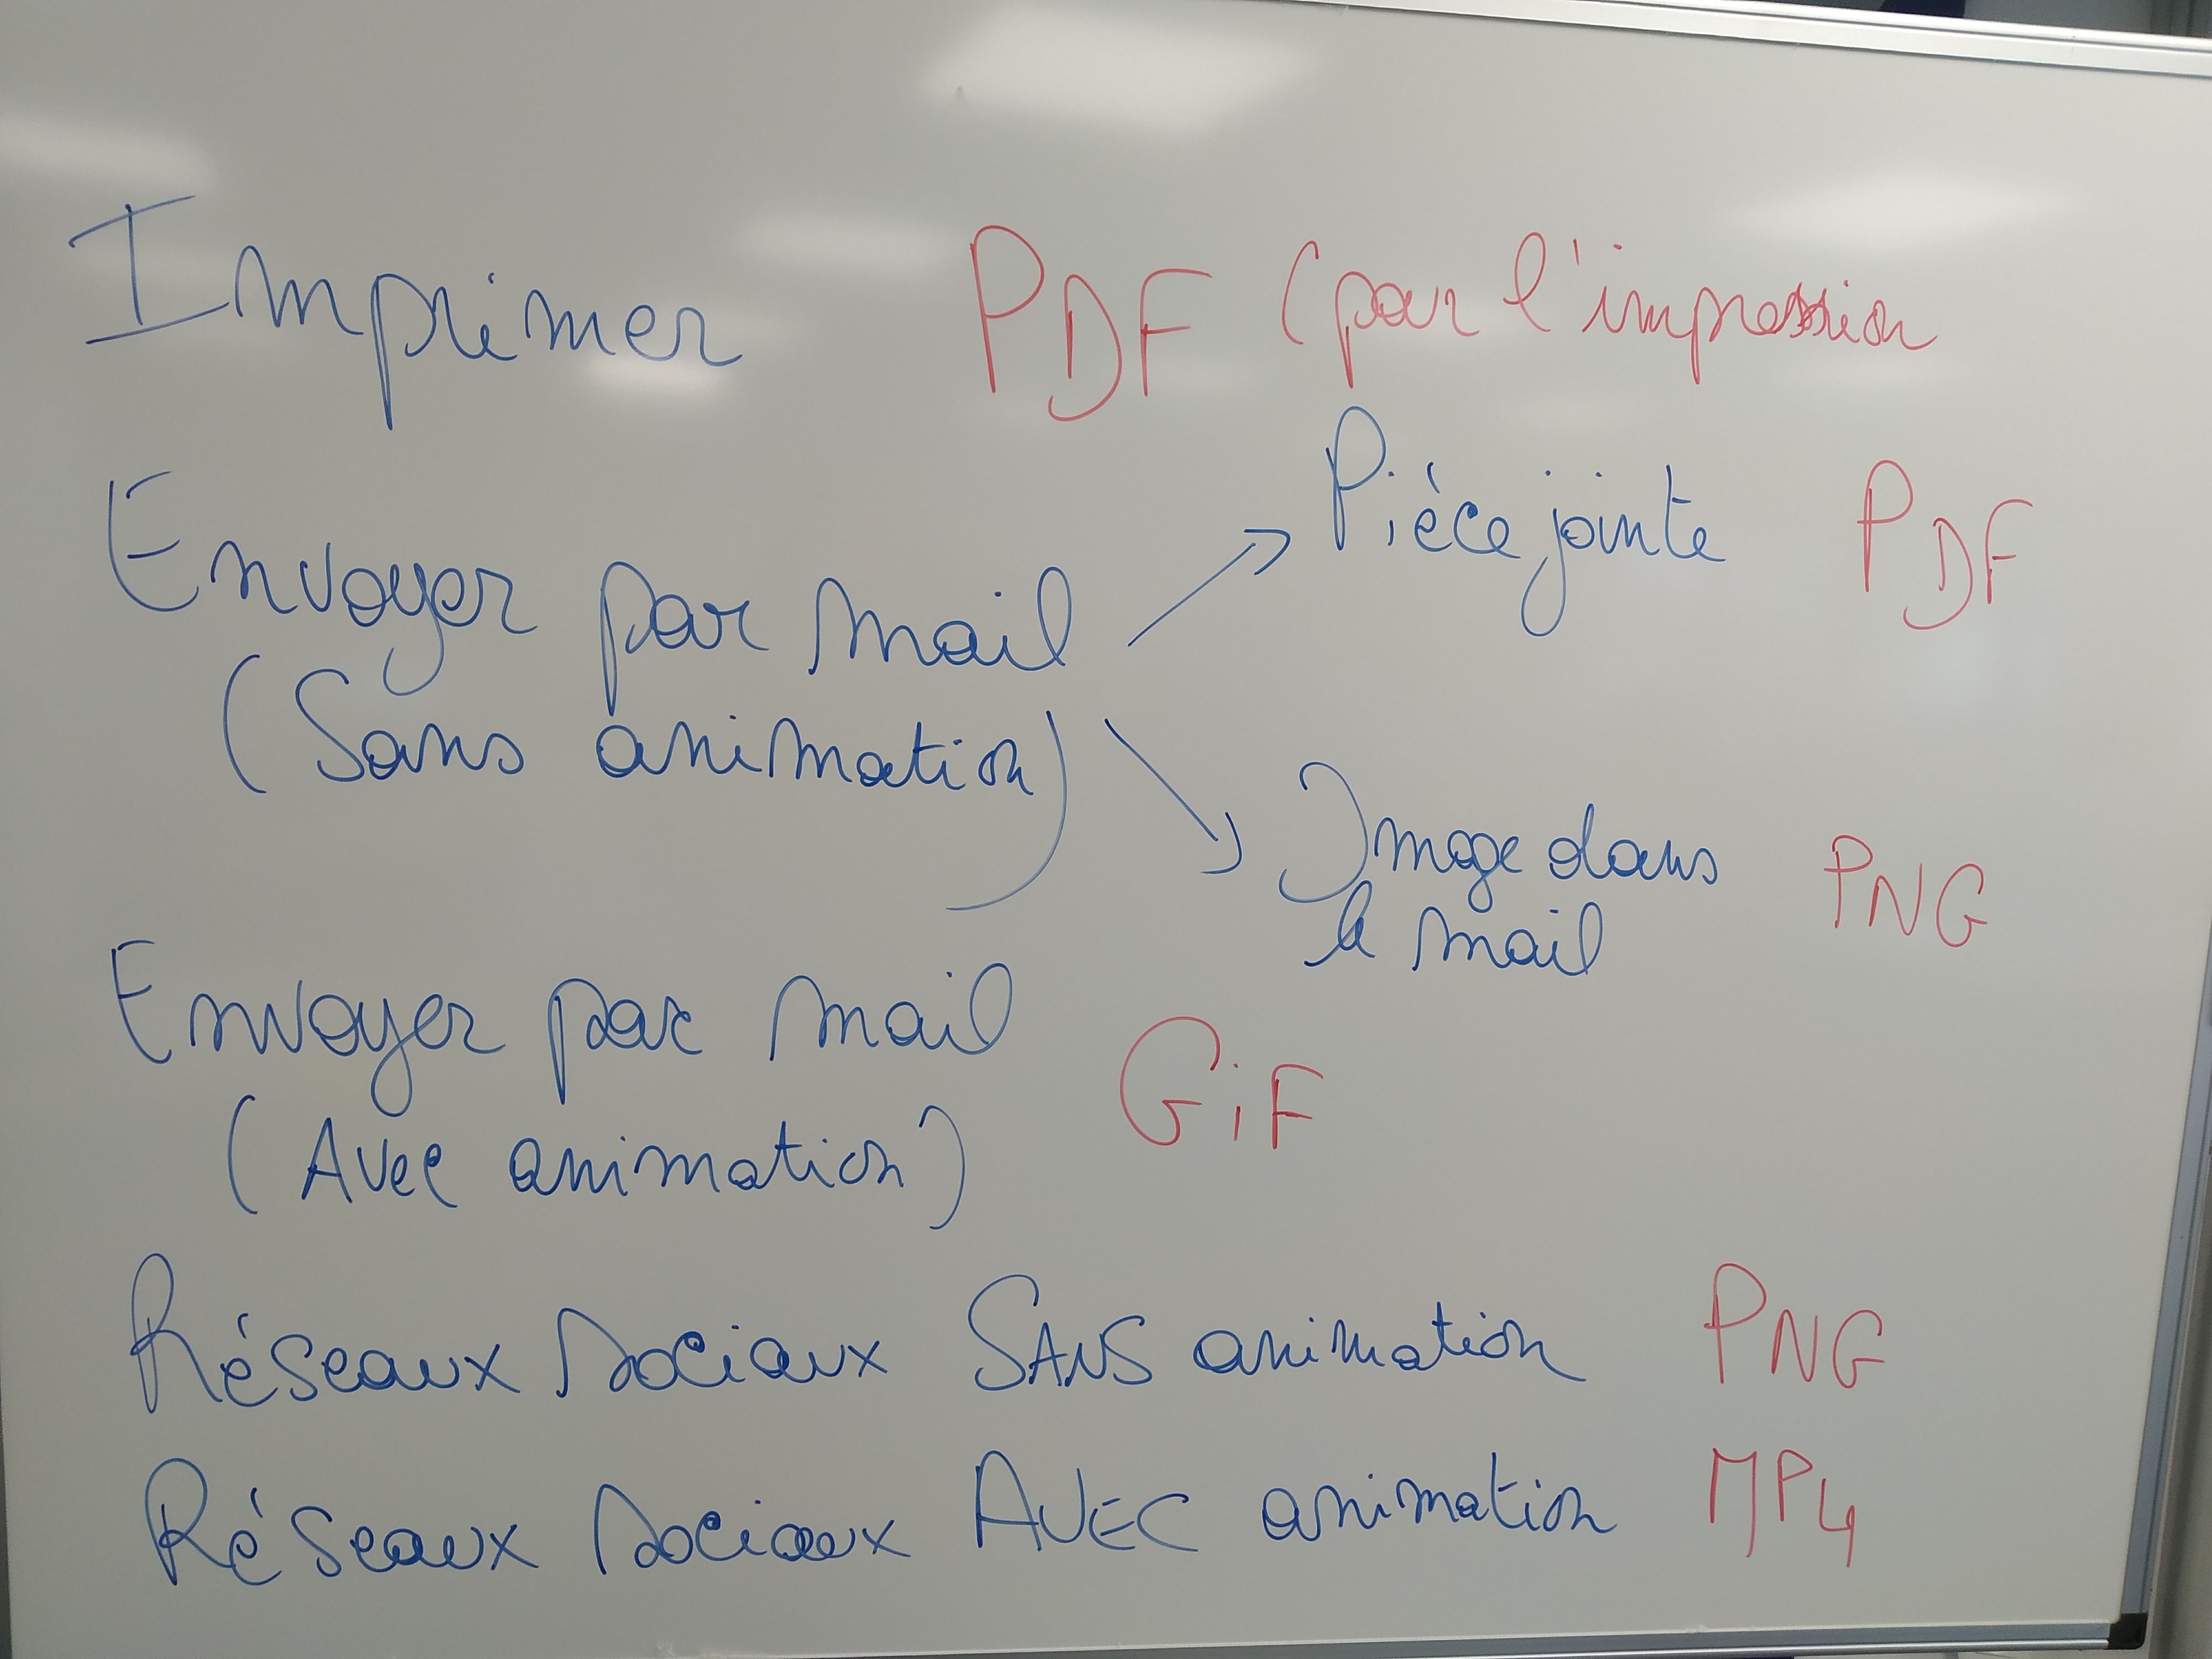 Imprimer PDF (pour l'impression
Pièce jointe PDF
Envoyer par mail
(Sans animation)
Image dans PNG
le mail
Envoyer par mail
GiF
(Avec animation)
Réseaux sociaux SANS animation PNG
Réseaux sociaux AVEC animation MP4